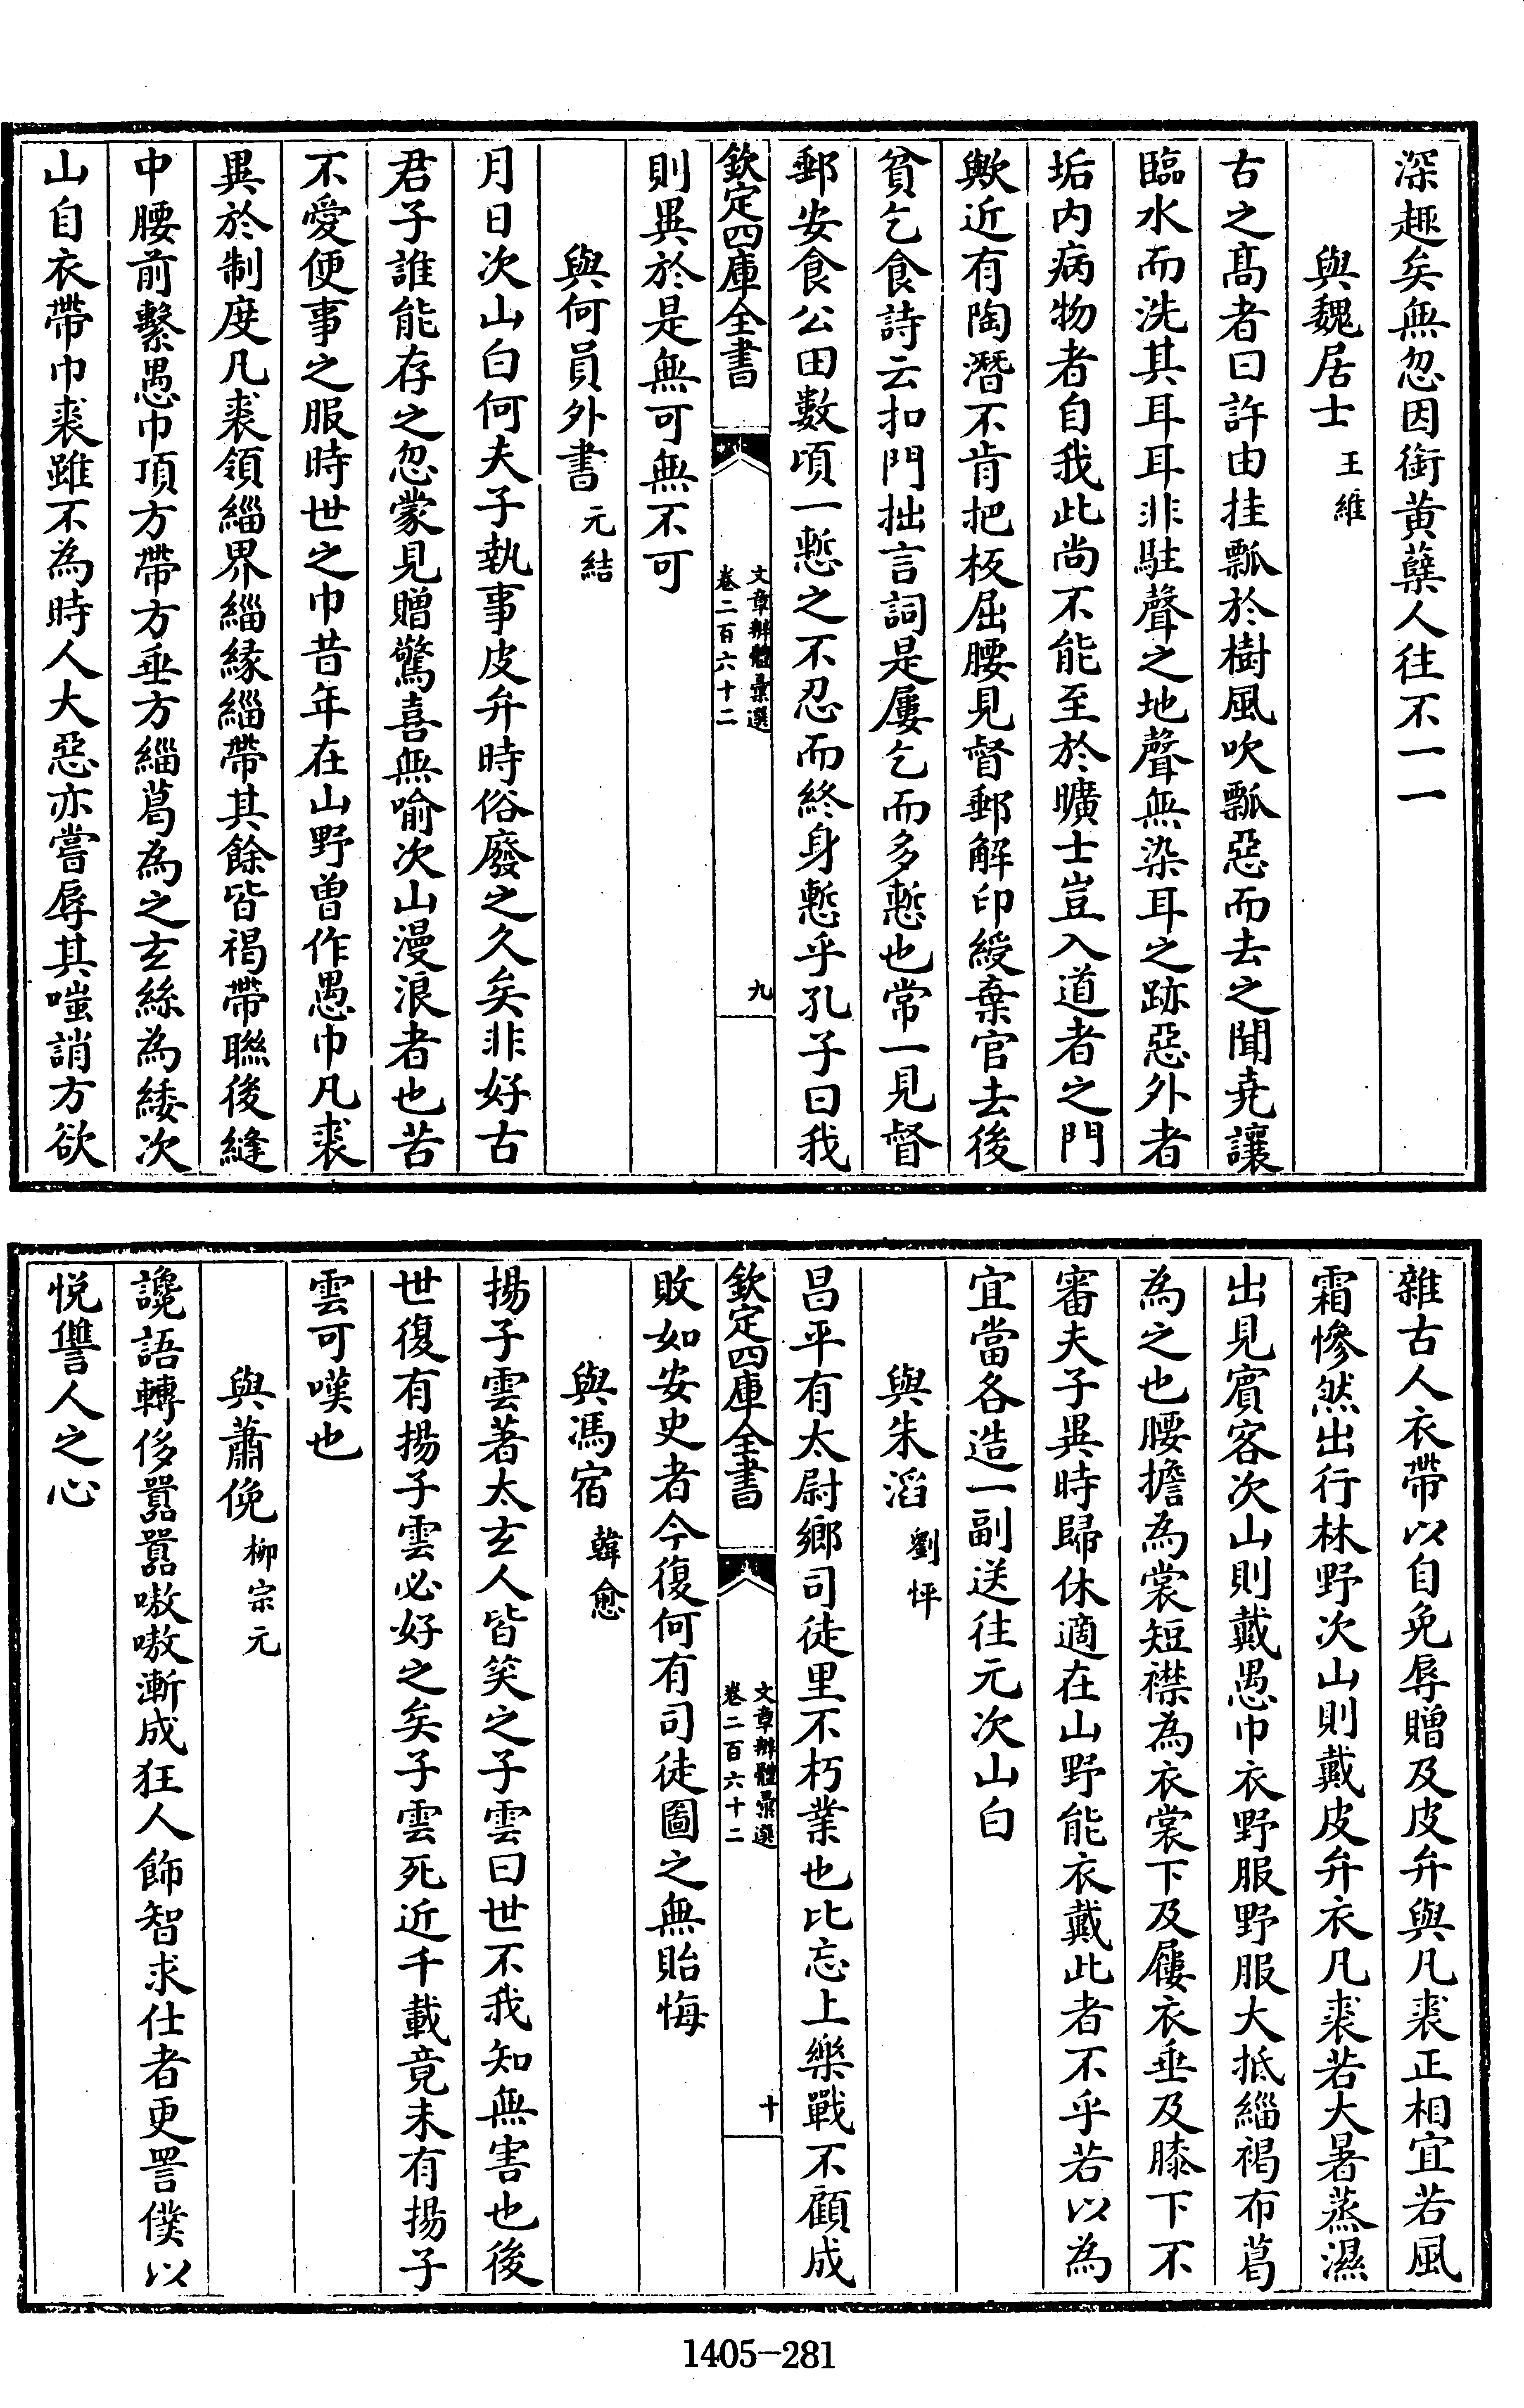 深趣矣無忽因銜黄蘗人往不一一
與魏居士 王維
古之髙者曰許由挂瓢於樹風吹瓢惡而去之聞堯讓
臨水而洗其耳耳非駐聲之地聲無染耳之跡惡外者
垢内病物者自我此尚不能至於曠士豈入道者之門
歟近有陶潛不肯把板屈腰見督郵解印綬棄官去後
貧乞食詩云扣門拙言詞是屢乞而多慙也常一見督
郵安食公田數頃一慙之不忍而終身慙乎孔子曰我
欽定四庫全書 文章辨體彙選 卷二百六十二 九
則異於是無可無不可
與何員外書 元結
月日次山白何夫子執事皮弁時俗廢之久矣非好古
君子誰能存之忽蒙見贈驚喜無喻次山漫浪者也苦
不愛便事之服時世之巾昔年在山野曾作愚巾凡裘
異於制度凡裘領緇界緇縁緇帶其餘皆褐帶聯後縫
中腰前繫愚巾頂方帶方垂方緇葛為之玄絲為緌次
山自衣帶巾裘雖不為時人大惡亦嘗辱其嗤誚方欲
雜古人衣帶以自免辱贈及皮弁與凡裘正相宜若風
霜慘然出行林野次山則戴皮弁衣凡裘若大暑蒸濕
出見賓客次山則戴愚巾衣野服野服大抵緇褐布葛
為之也腰擔為裳短襟為衣裳下及屨衣垂及膝下不
審夫子異時歸休適在山野能衣戴此者不乎若以為
宜當各造一副送往元次山白
與朱滔 劉怦
昌平有太尉鄉司徒里不朽業也比忘上樂戰不顧成
欽定四庫全書 文章辨體彙選 卷二百六十二 十
敗如安史者今復何有司徒圖之無貽悔
與馮宿 韓愈
揚子雲著太玄人皆笑之子雲曰世不我知無害也後
世復有揚子雲必好之矣子雲死近千載竟未有揚子
雲可嘆也
與蕭俛 柳宗元
讒語轉侈囂囂嗷嗷漸成狂人飾智求仕者更詈僕以
悦讐人之心
1405-281